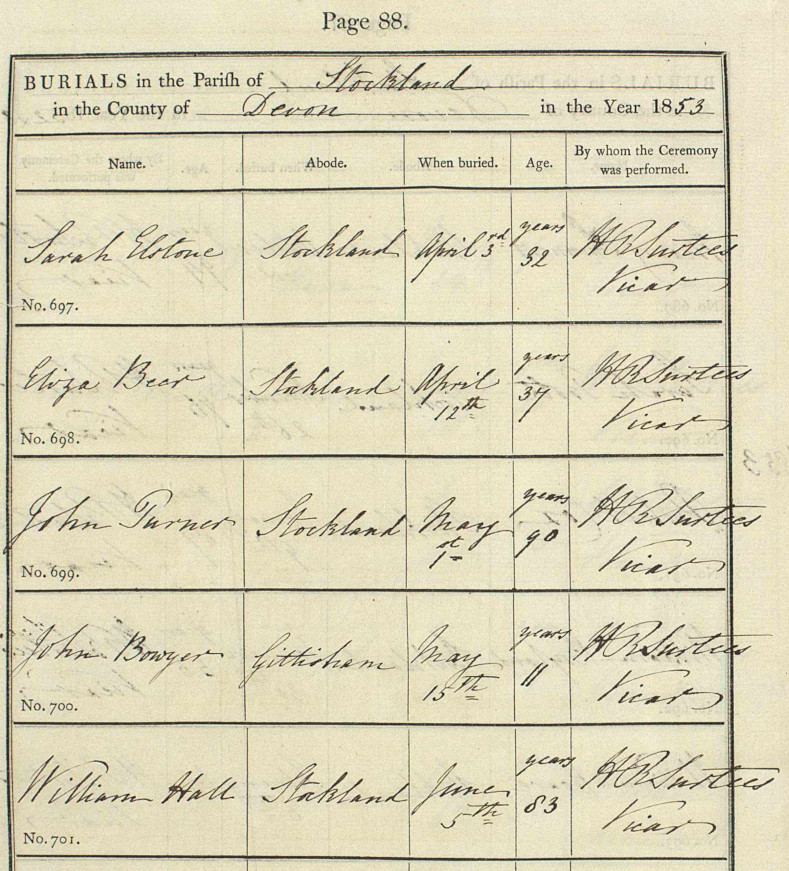 Page 88.
BURIALS in the Parish of Stockland
in the County of Devon in the Year 1853
Name. Abode. When buried. Age. By whom the Ceremony was performed.
Sarah Elstone Stockland April 3rd years 32 H R Surtees Vicar
No. 697.
Eliza Beer Stockland April 12th years 37 H R Surtees Vicar
No. 698.
John Turner Stockland May 1st years 90 H R Surtees Vicar
No. 699.
John Bowyer Gittisham May 15th years 11 H R Surtees Vicar
No. 700.
William Hall Stockland June 5th years 83 H R Surtees Vicar
No. 701.